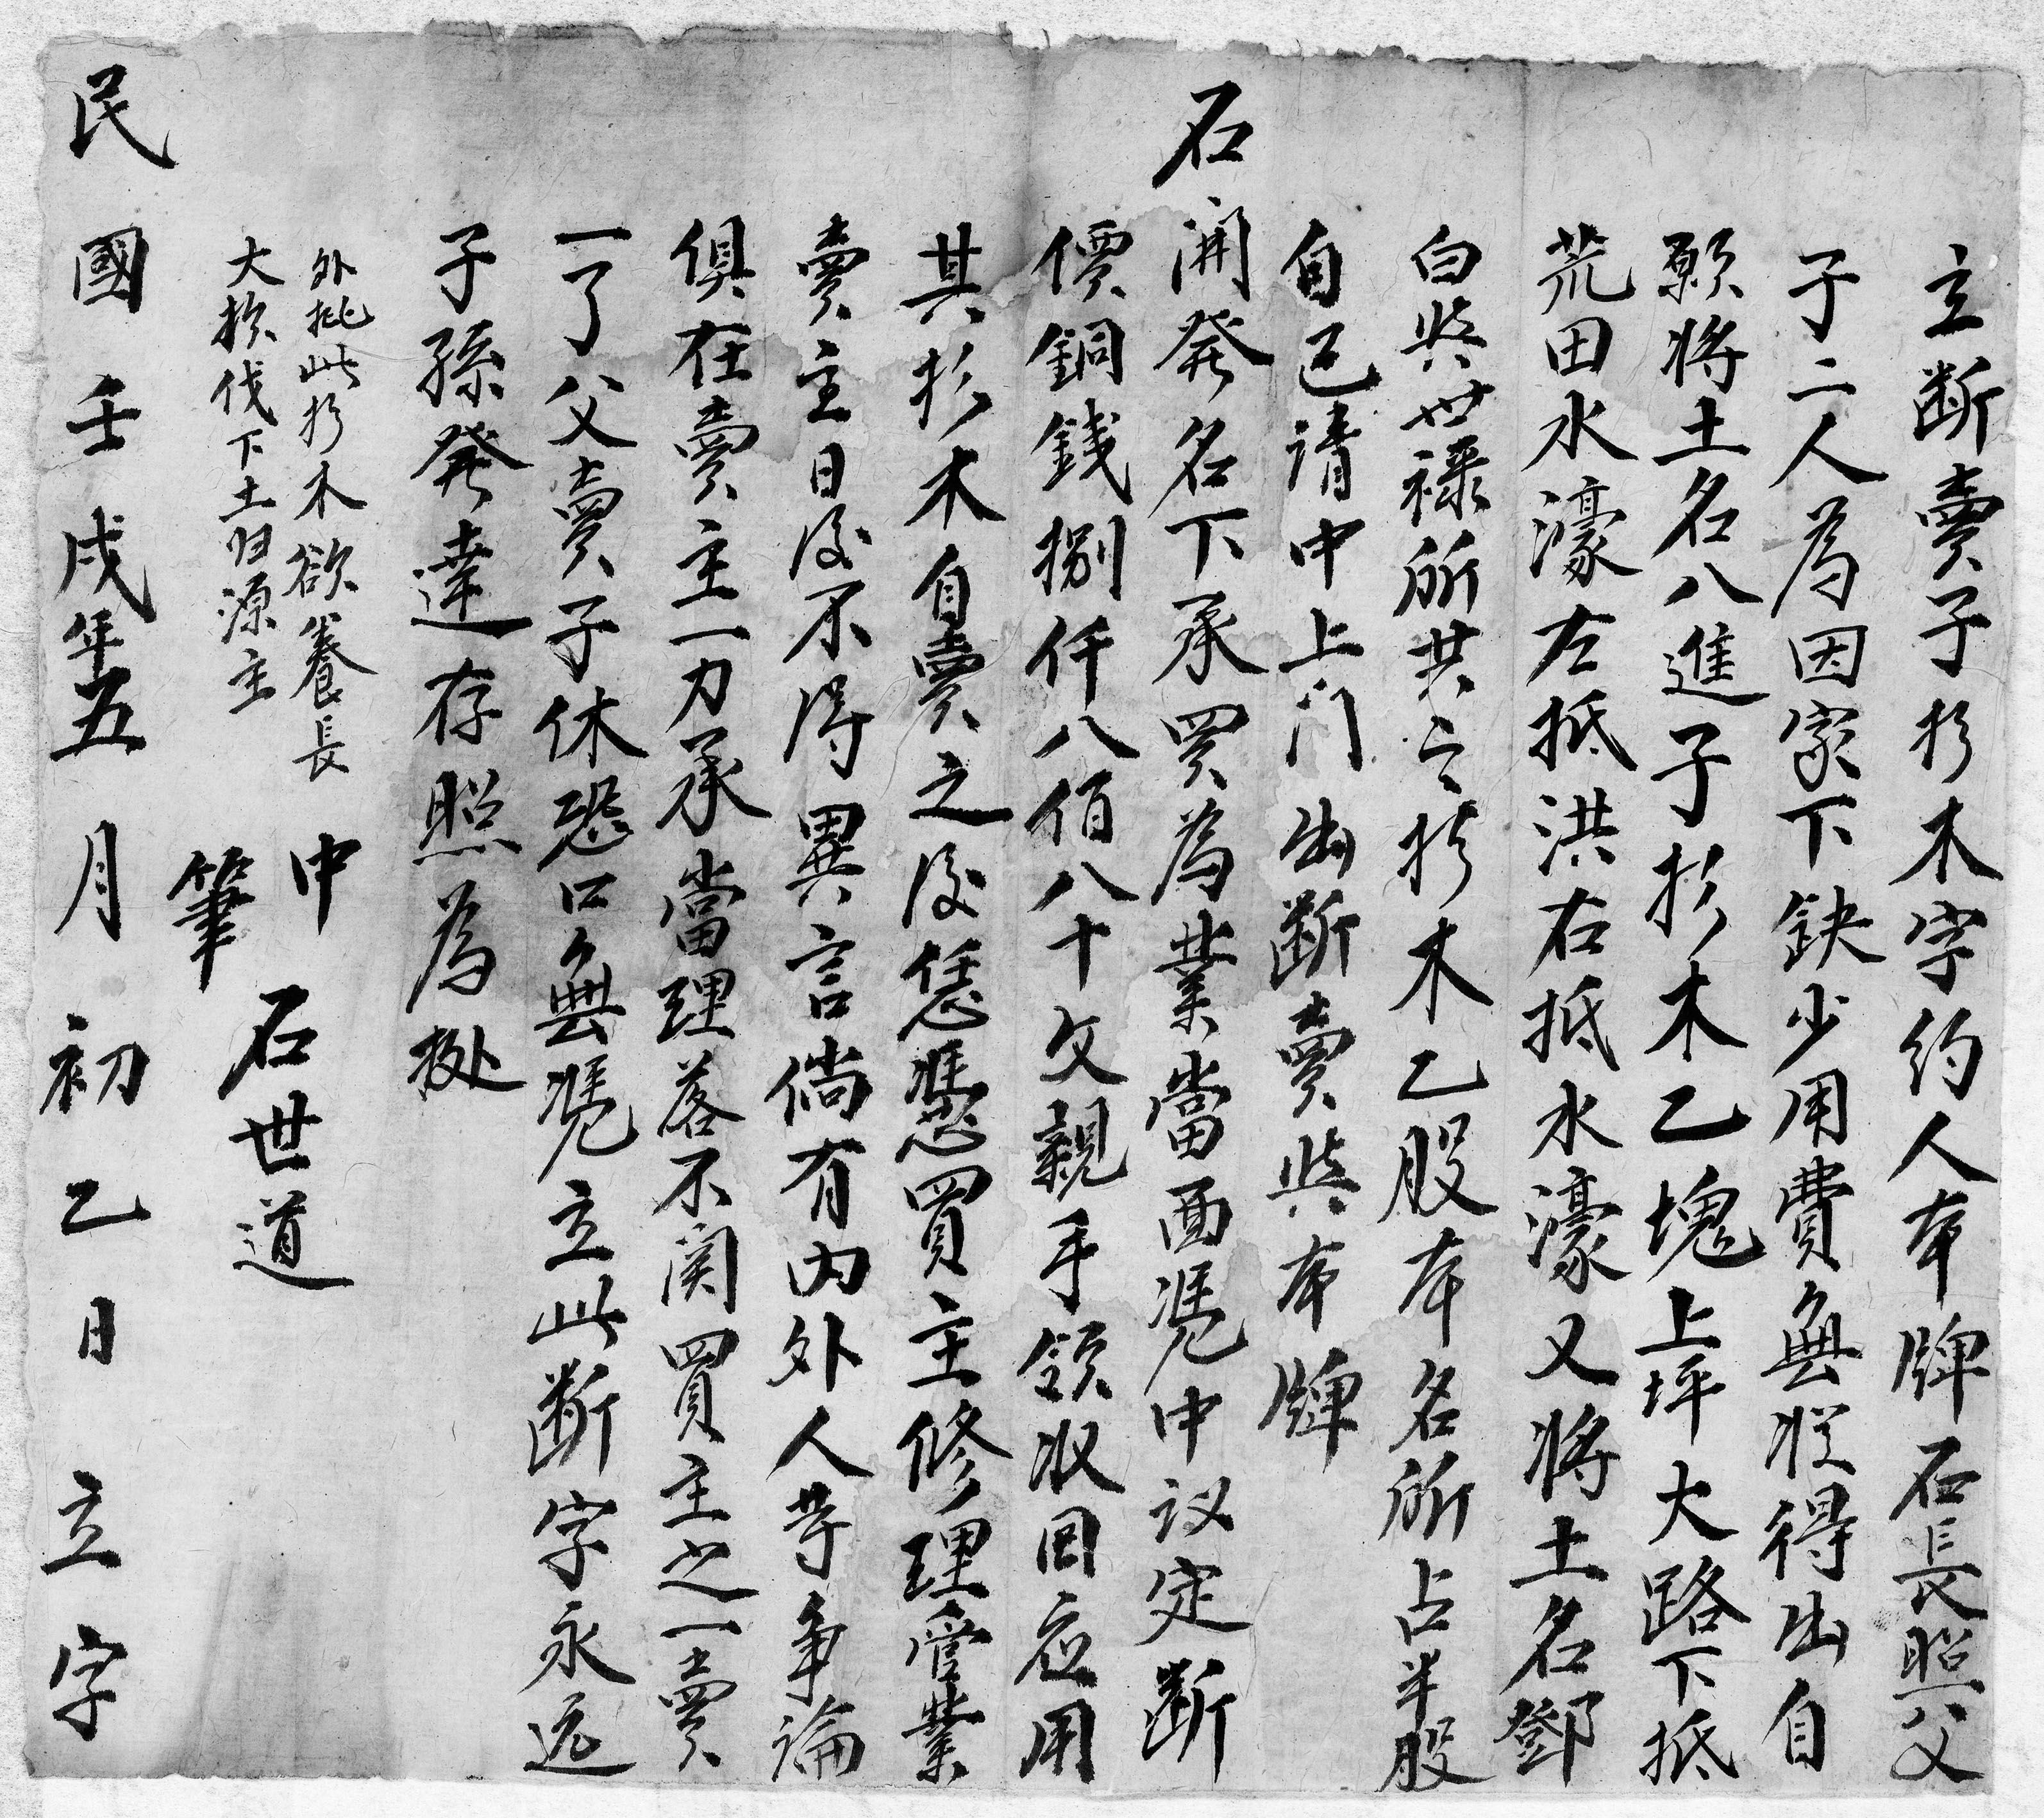 立断賣子杉木字約人本牌石長照父
子二人為因家下缺少用費無從得出自
願將土名八進子杉木乙塊上坪大路下抵
荒田水濠左抵洪右抵水濠又将土名鄧
白與世祿所共之杉木乙股本名所占半股
自己请中上门出断賣與本牌
石開発名下承買為業當面凭中议定断
價銅錢捌仟八佰八十文親手领收回应用
其杉木自賣之後恁憑買主修理管業
賣主日後不得異言倘有内外人等争論
俱在賣主一力承當理落不関買主之一賣
一了父賣子休恐口無凭立此断字永远
子孫発達存照為拠
外批此杉木欲養長
大砍伐下土归源主
中
筆 石世道
民國壬戌年五月初乙日立字